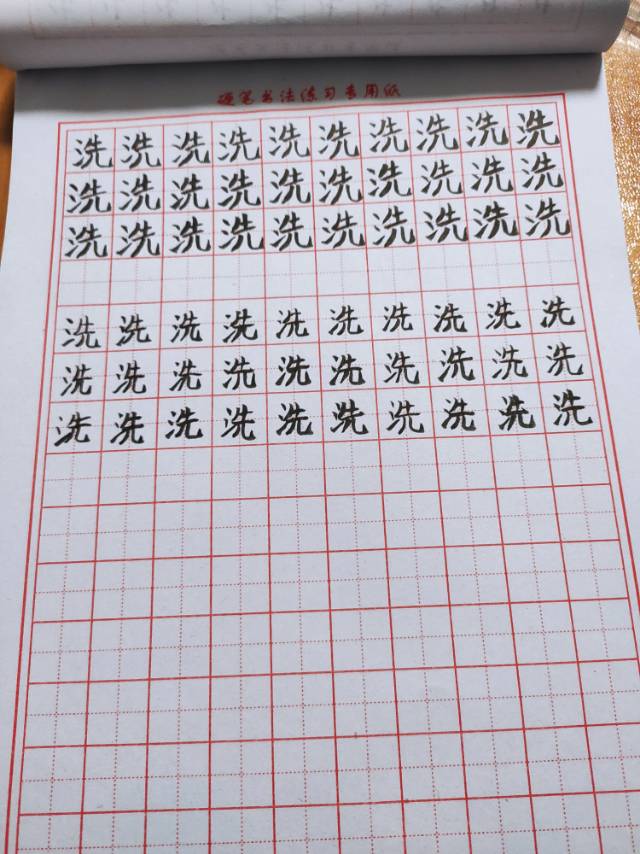 硬笔书法练习专用纸
洗洗洗洗洗洗洗洗洗洗
洗洗洗洗洗洗洗洗洗洗
洗洗洗洗洗洗洗洗洗洗
洗洗洗洗洗洗洗洗洗洗
洗洗洗洗洗洗洗洗洗洗
洗洗洗洗洗洗洗洗洗洗